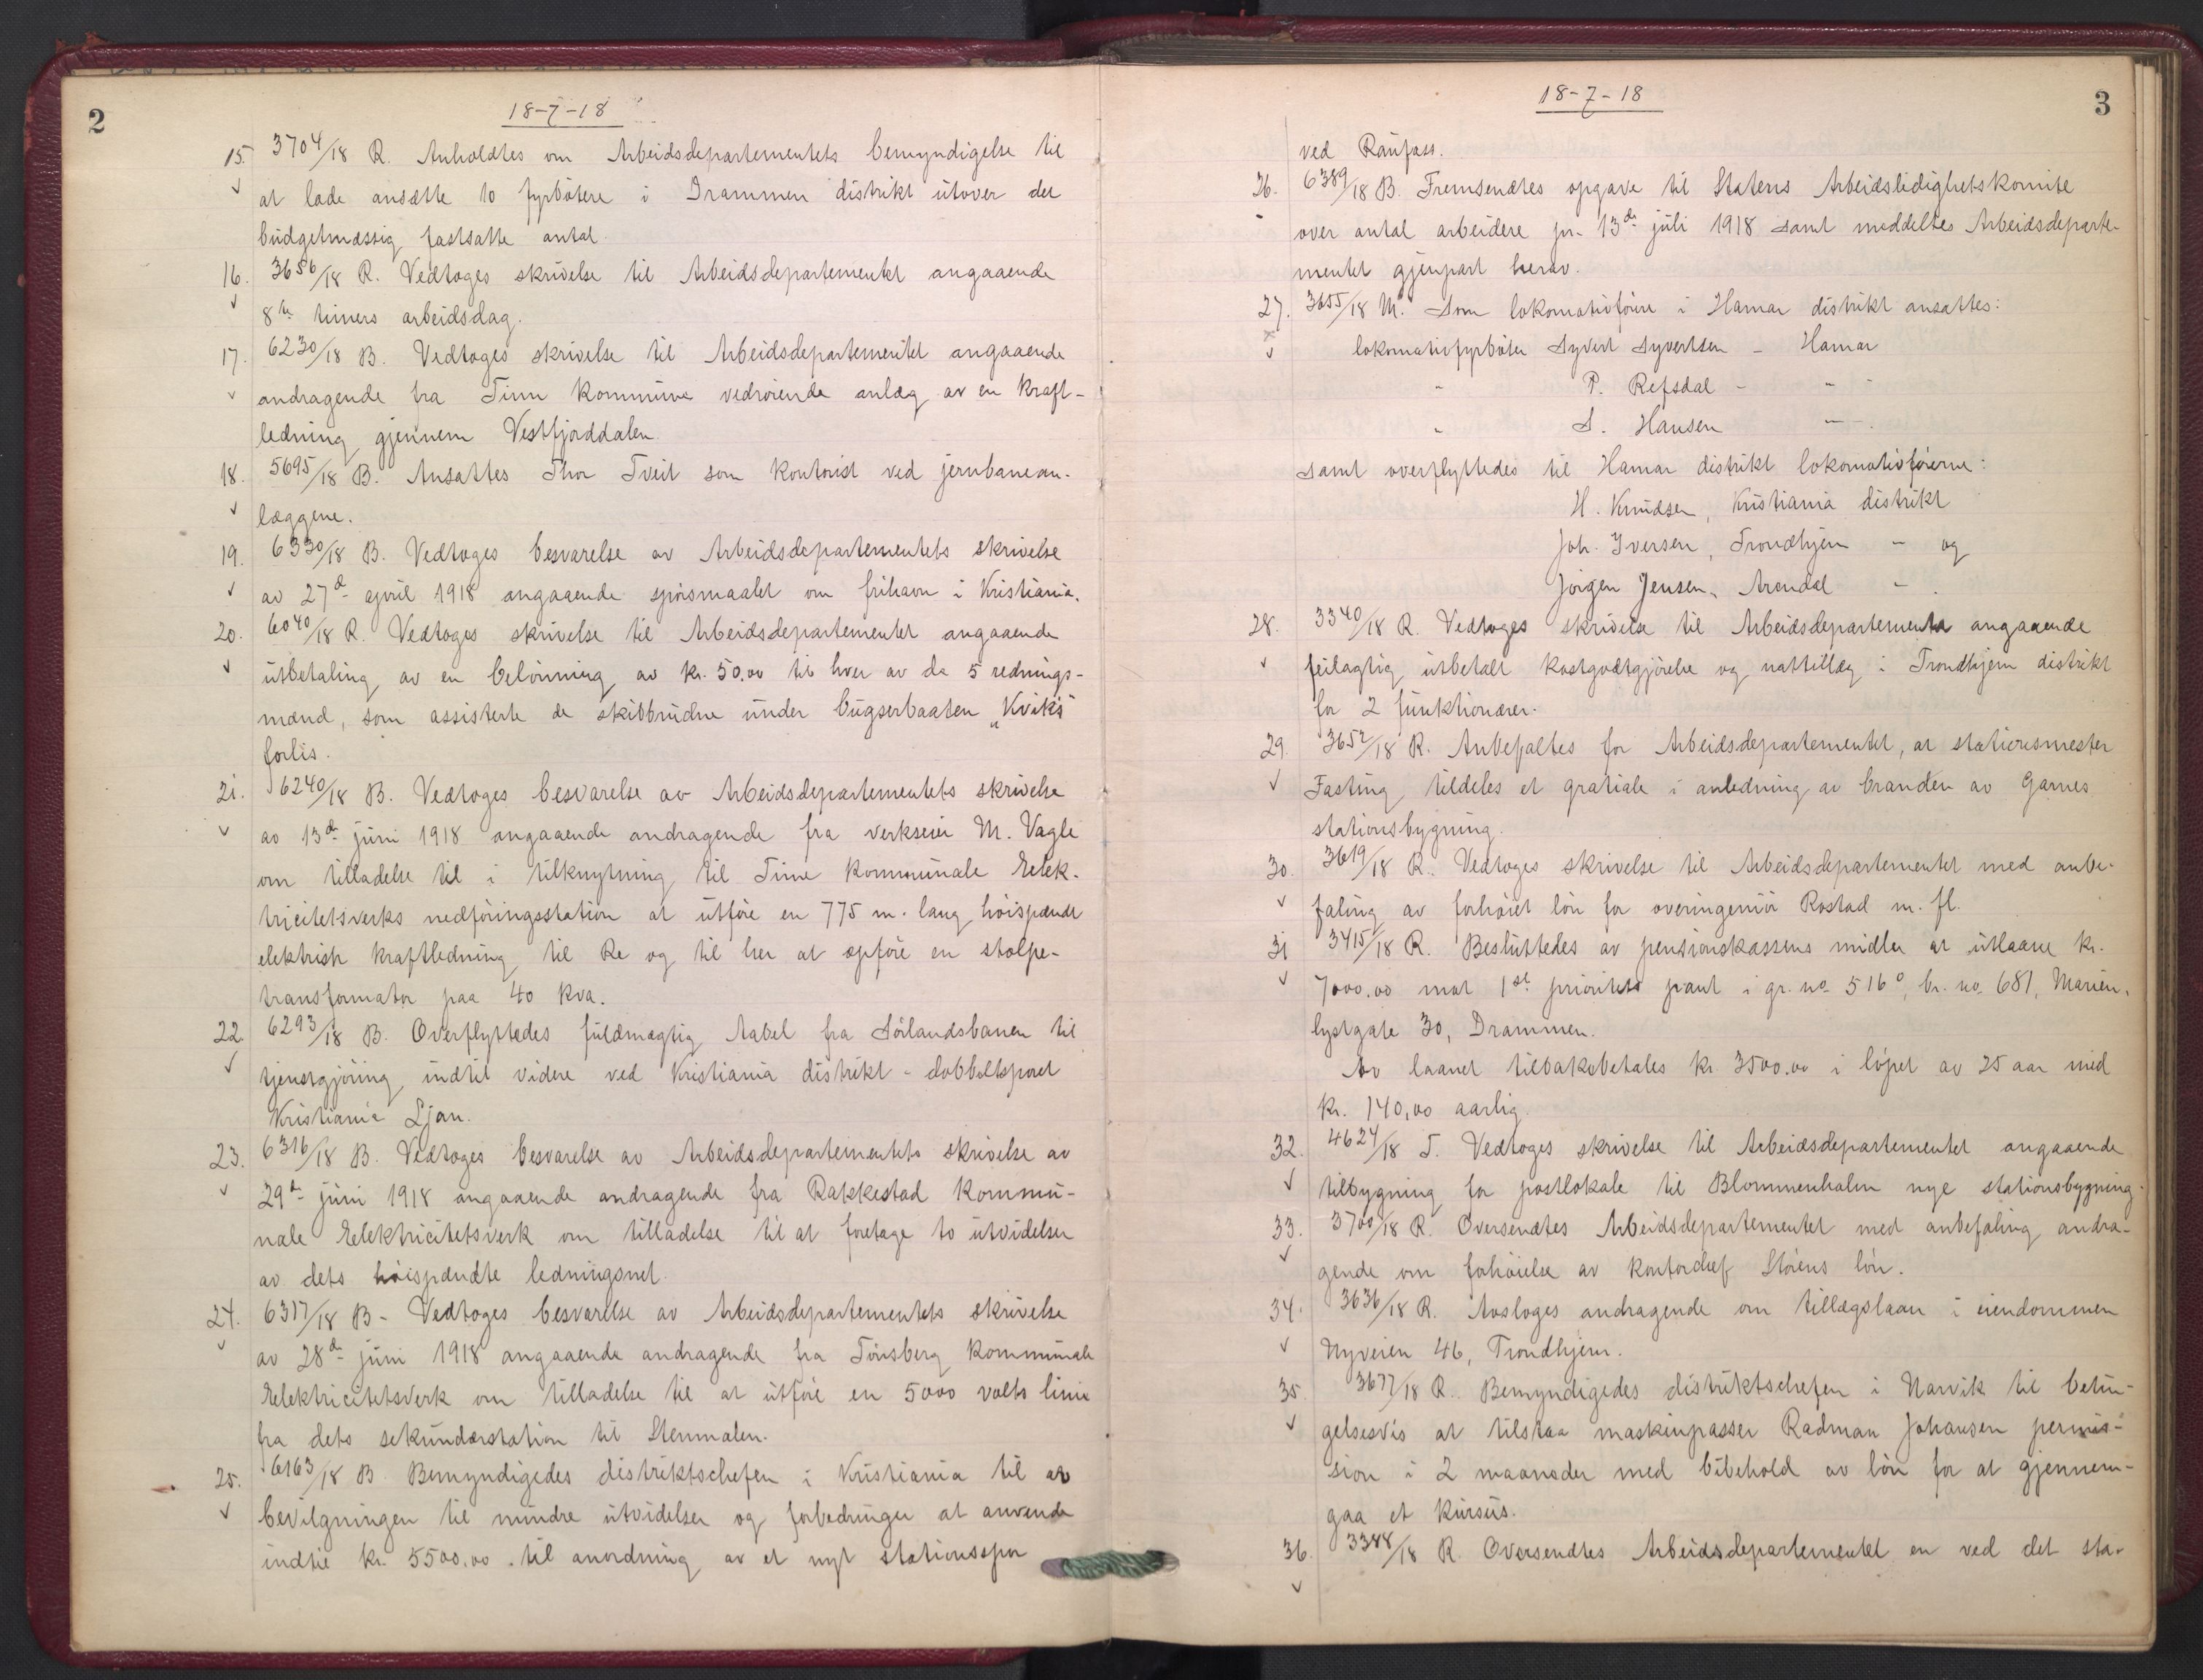 2
18-7-18
15. 3704/18 R. Anholdtes om Arbeidsdepartementets bemyndigelse til
at lade ansætte 10 fyrbøtere i Drammen distrikt utover det
budgetmæssig fastsatte antal.
16. 3656/18 R. Vedtoges skrivelse til Arbeidsdepartementet angaaende
8te timers arbeidsdag.
17. 6230/18 B. Vedtoges skrivelse til Arbeidsdepartementet angaaende
andragende fra Tinn kommune vedrørende anlæg av en kraft-
ledning gjennem Vestfjorddalen.
18. 5695/18 B. Ansattes Thor Tveit som kontorist ved jernbanean-
læggene.
19. 6330/18 B. Vedtoges besvarelse av Arbeidsdepartementets skrivelse
av 27de april 1918 angaaende spørsmaalet om frihavn i Kristiania.
20. 6040/18 R. Vedtoges skrivelse til Arbeidsdepartementet angaaende
utbetaling av en belønning av kr. 50.00 til hver av de 5 rednings-
mænd, som assisterte de skibbrudne under bugserbaaten „Kvik's"
forlis.
21. 6240/18 B. Vedtoges besvarelse av Arbeidsdepartementets skrivelse
av 13de juni 1918 angaaende andragende fra verkseier M. Vagle
om tilladelse til i tilknytning til Time kommunale Elek-
tricitetsverks nedføringsstation at utføre en 775 m. lang høispændt
elektrisk kraftledning til Re og til her at opføre en stolpe-
transformator paa 40 kva.
22. 6293/18 B. Overflyttedes fuldmægtig Aabel fra Sørlandsbanen til
tjenstgjøring indtil videre ved Kristiania distrikt - dobbeltsporet
Kristiania Ljan.
23. 6316/18 B. Vedtoges besvarelse av Arbeidsdepartementets skrivelse av
29de juni 1918 angaaende andragende fra Rakkestad kommu-
nale Elektricitetsverk om tilladelse til at foretage to utvidelser
av dets høispændte ledningsnet.
24. 6317/18 B. Vedtoges besvarelse av Arbeidsdepartementets skrivelse
av 28de juni 1918 angaaende andragende fra Tønsberg kommunale
Elektricitetsverk om tilladelse til at utføre en 5000 volts linie
fra dets sekundærstation til Stenmalen.
25. 6163/18 B. Bemyndigedes distriktschefen i Kristiania til av
bevilgningen til mindre utvidelser og forbedringer at anvende
indtil kr. 5500.00 til anordning av et nyt stationsspor
3
18-7-18
ved Raufoss.
26. 6389/18 B. Fremsendtes opgave til Statens Arbeidsledighetskomite
over antal arbeidere pr. 13de juli 1918 samt meddeltes Arbeidsdeparte-
mentet gjenpart herav.
27. 3655/18 M. Som lokomotivfører i Hamar distrikt ansattes:
lokomotivfyrbøter Syvert Syvertsen - Hamar
" P. Refsdal - " -
" S. Hansen " -
samt overflyttedes til Hamar distrikt lokomotivførerne:
H. Knudsen, Kristiania distrikt
Joh. Iversen, Trondhjem - og
Jørgen Jensen, Arendal - .
28. 3340/18 R. Vedtoges skrivelse til Arbeidsdepartementet angaaende
feilagtig utbetalt kostgodtgjørelse og nattillæg i Trondhjem distrikt
for 2 funktionærer.
29. 3652/18 R. Anbefaltes for Arbeidsdepartementet, at stationsmester
Fasting tildeles et gratiale i anledning av branden av Garnes
stationsbygning.
30. 3619/18 R. Vedtoges skrivelse til Arbeidsdepartementet med anbe-
faling av forhøiet løn for overingeniør Rostad m. fl.
31 3415/18 R. Besluttedes av pensionskassens midler at utlaane kr.
7000.00 mot 1ste prioritets pant i gr. no. 516º, br. no. 681, Marien-
lystgate 30, Drammen.
Av laanet tilbakebetales kr. 3500.00 i løpet av 25 aar med
kr. 140,00 aarlig.
32. 4624/18 T. Vedtoges skrivelse til Arbeidsdepartementet angaaende
tilbygning for postlokale til Blommenholm nye stationsbygning.
33. 3700/18 R. Oversendtes Arbeidsdepartementet med anbefaling andra-
gende om forhøielse av kontorchef Størens løn.
34. 3636/18 R. Avsloges andragende om tillægslaan i eiendommen
Nyveien 46, Trondhjem.
35. 3677/18 R. Bemyndigedes distriktschefen i Narvik til betin-
gelsesvis at tilstaa maskinpasser Radman Johansen permis-
sion i 2 maaneder med bibehold av løn for at gjennem-
gaa et kursus.
36. 3388/18 R. Oversendtes Arbeidsdepartementet en ved det sta-